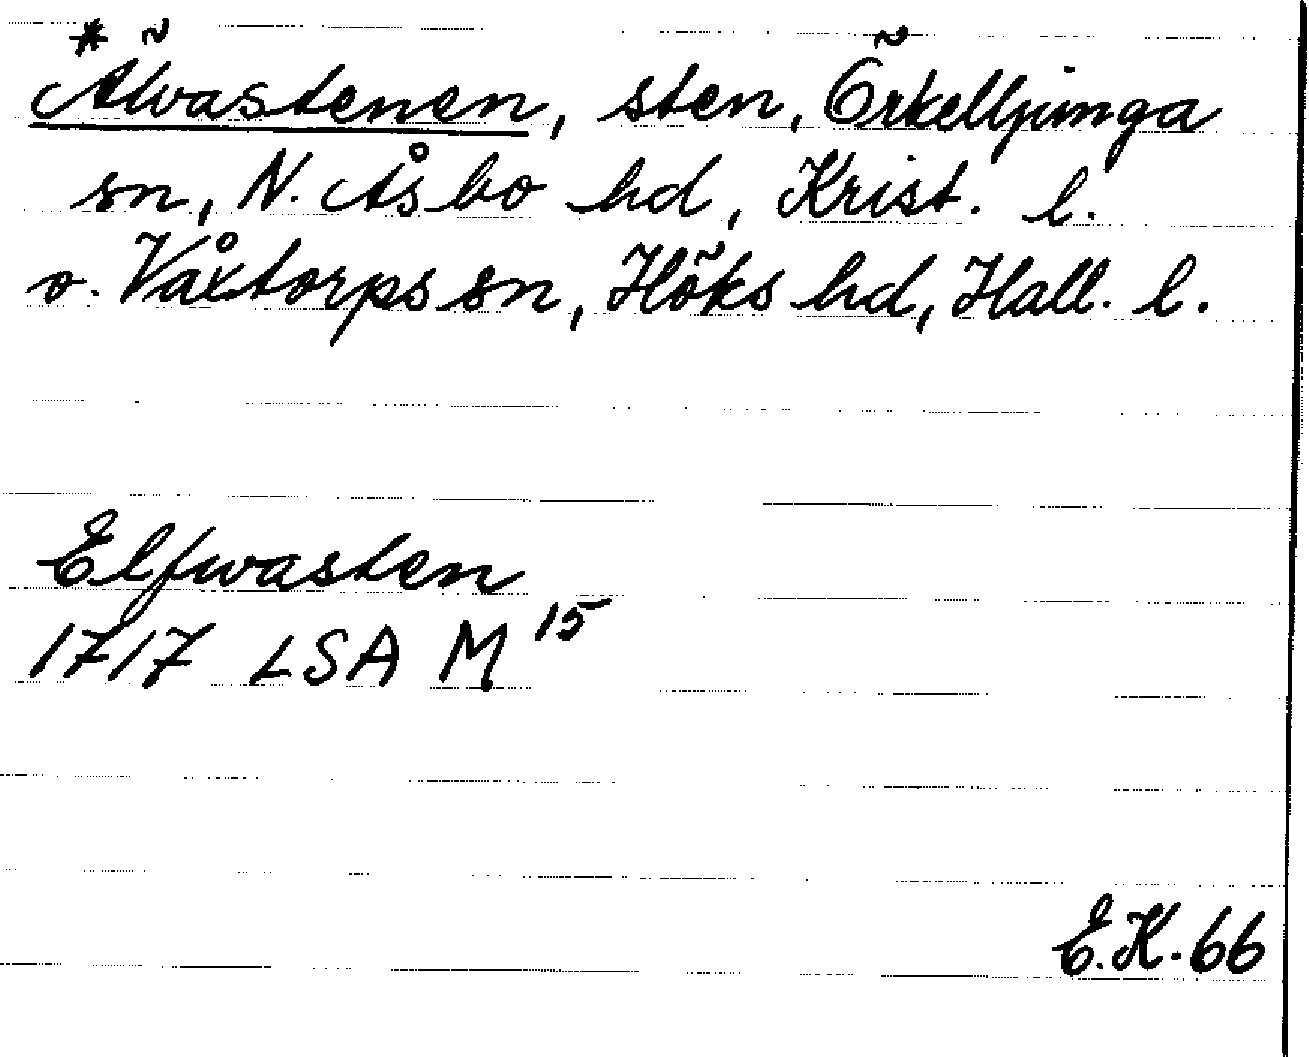 * Älvastenen, sten, Örkelljunga
sn, N. Åsbo hd, Krist. l.
o. Våxtorps sn, Höks hd, Hall. l.
Elfwasten
1717 LSA M 15
E.K. 66